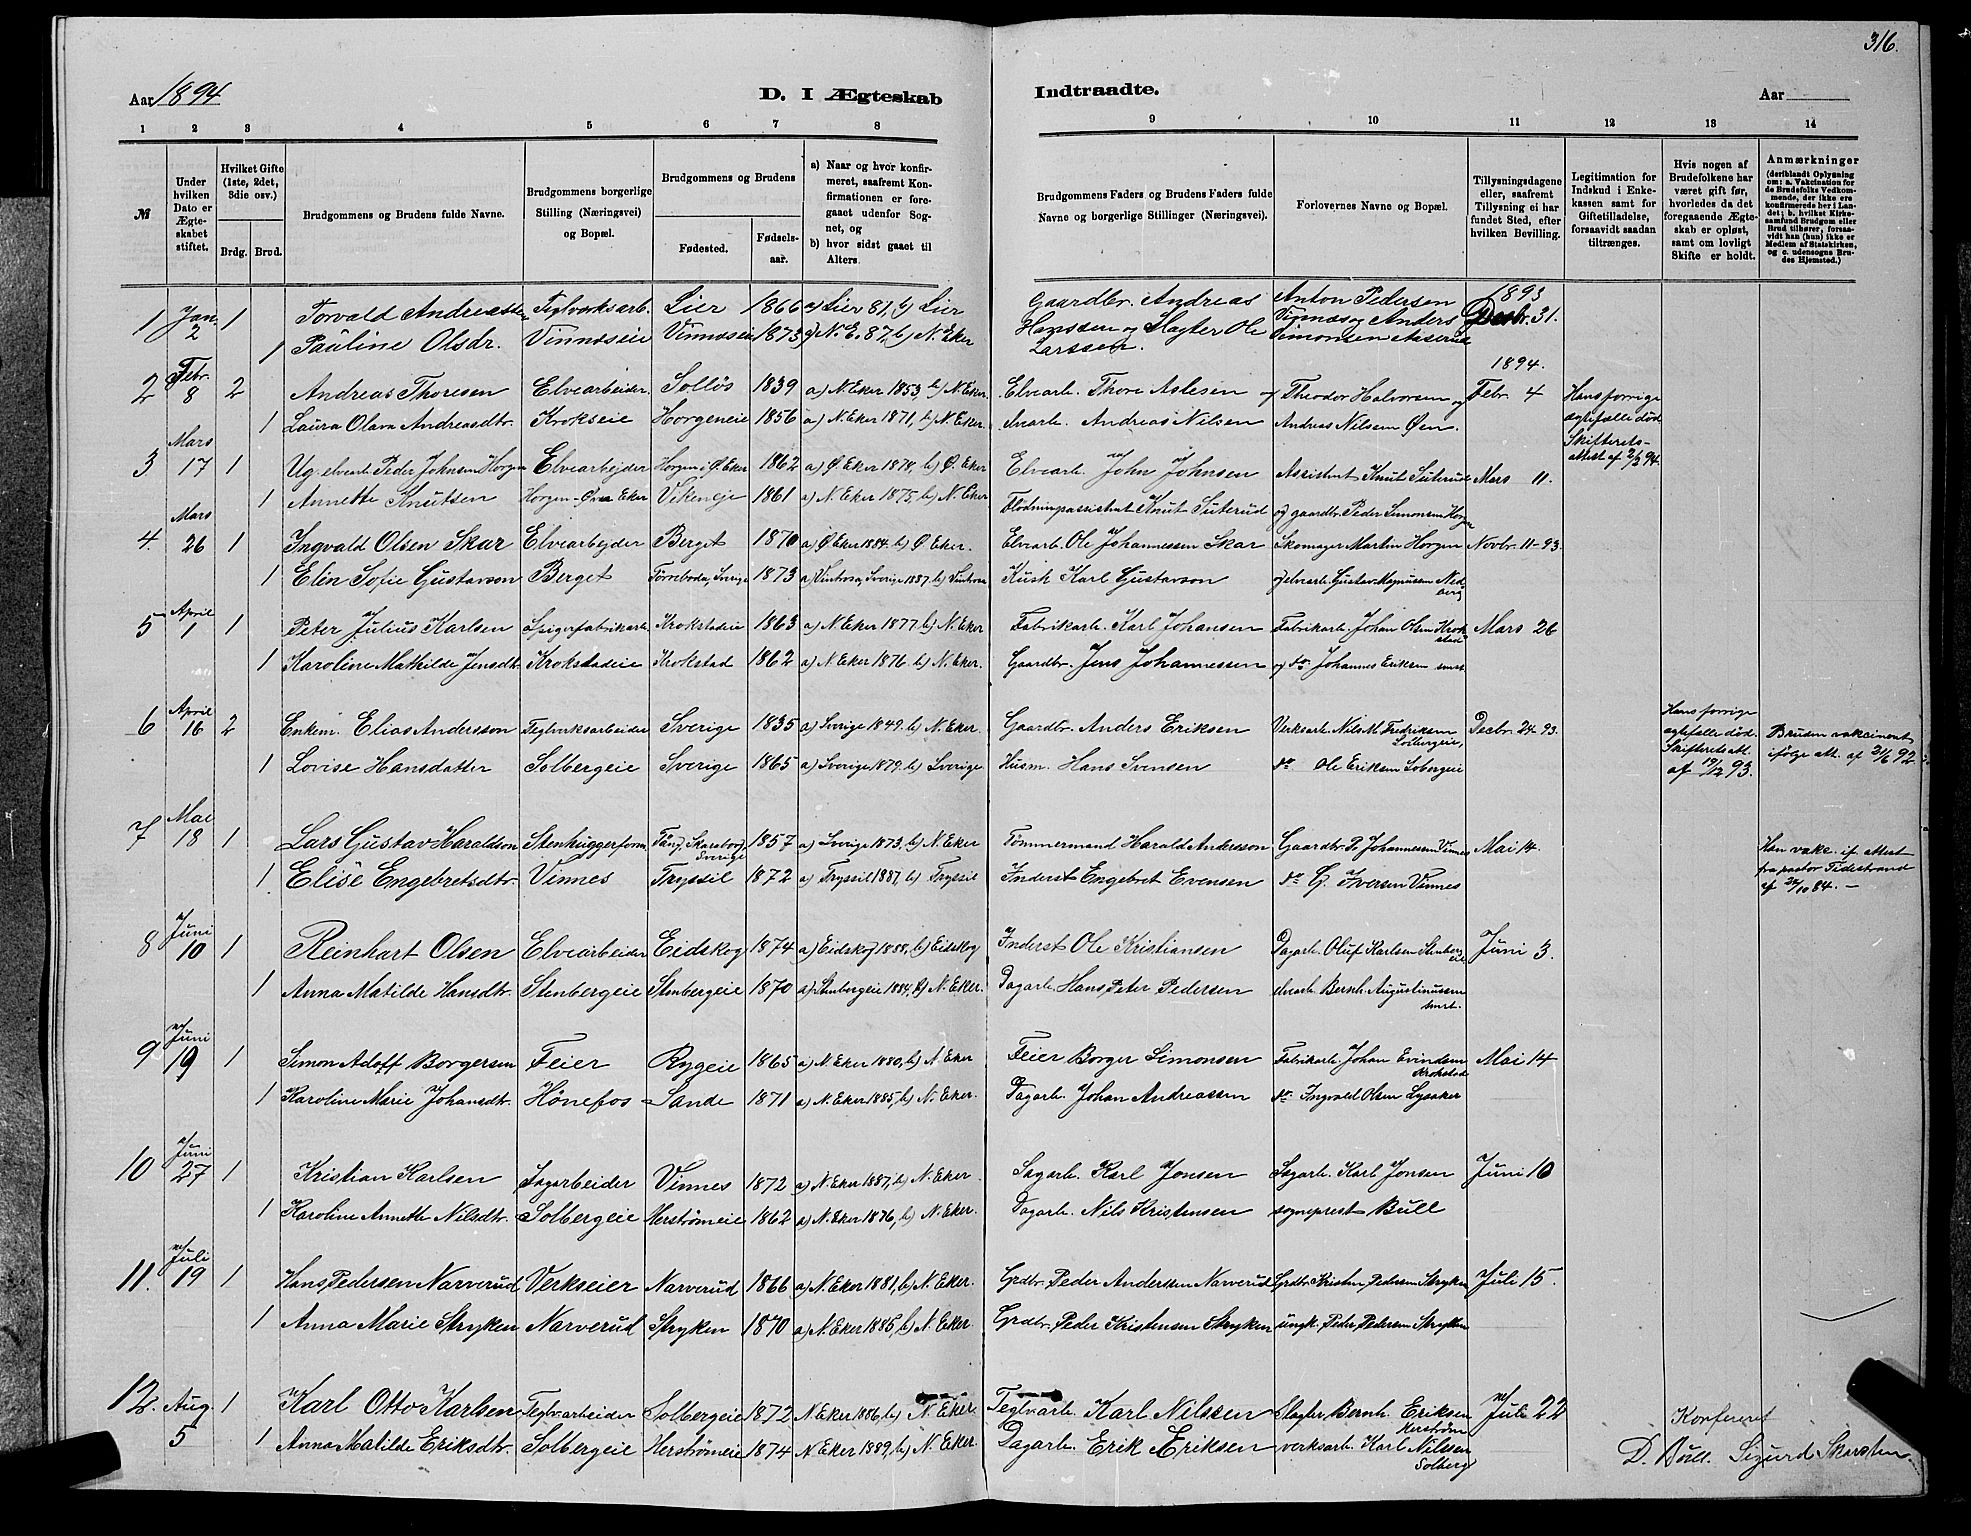 316.
Aar 1894
D. I Ægteskab
Indtraadte.
Aar
1 2 3 4 5 6 7 8 9 10 11 12 13 14
№
Under hvilken Dato er Ægteskabet stiftet.
Hvilket Gifte (1ste, 2det, 3die osv.)
Brdg. Brud.
Brudgommens og Brudens fulde Navne.
Brudgommens borgerlige Stilling (Næringsvei) og Bopæl.
Brudgommens og Brudens
Fødested.
Fødselsaar.
a) Naar og hvor konfirmeret, saafremt Konfirmationen er foregaaet udenfor Sognet, og
b) hvor sidst gaaet til Alters.
Brudgommens Faders og Brudens Faders fulde Navne og borgerlige Stillinger (Næringsvei).
Forlovernes Navne og Bopæl.
Tillysningsdagene eller, saafremt Tillysning ei har fundet Sted, efter hvilken Bevilling.
Legitimation for Indskud i Enkekassen samt for Giftetilladelse, forsaavidt saadan tiltrænges.
Hvis nogen af Brudefolkene har været gift før, hvorledes da det foregaaende Ægteskab er opløst, samt om lovligt Skifte er holdt.
Anmærkninger (deriblandt Oplysning om: a. Vakcination for de Brudefolks Vedkommende, der ikke ere konfirmerede her i Landet; b. hvilket Kirkesamfund Brudgom eller Brud tilhører, forsaavidt han (hun) ikke er Medlem af Statskirken, og c. udensogns Brudes Hjemsted.)
1 Jan. 2 1 Torvald Andreassen Teglværksarb. Lier 1866 a) Lier 81, b) Lier Gaardbr. Andreas Hanssen og Slagter Ole Larssen. Anton Pedersen Vinnes og Anders Simonsen Aaserud 1893 Decbr. 31.
1 Pauline Olsdr. Vinneseie Vinneseie 1873 a) N. E. 87, b) N. Eker
1894.
2 Febr. 8 2 Andreas Thoresen Elvearbeider Solløs 1839 a) N. Eker 1853, b) N. Eker. Elvearb. Thore Aslesen og Theodor Halvorsen og Febr. 4 Hans forrige ægtefælle død Skifterets-attest af 2/2 94.
1 Laura Olava Andreasdtr. Krokseie Horgeneie 1856 a) N. Eker 1871, b) N. Eker. elvearb. Andreas Nilsen Andreas Nilsen Øen.
3 Mars 17 1 Ug. elvearb. Peder Johnsen Horgen Elvearbejder Horgen i Ø. Eker 1862 a) Ø. Eker 1878, b) Ø. Eker Elvearb. John Johnsen Assistent Knut Suterud Mars 11.
1 Annette Knutsen Horgen-Øvre Eker Vikeneje 1861 a) N. Eker 1875, b) N. Eker Flødningsassistent Knut Suterud og gaardbr. Peder Simonsen Horgen
4. Mars 26 1 Ingvald Olsen Skar Elvearbejder Berget 1870 a) Ø Eker 1884, b) Ø Eker. Elvearb. Ole Johannessen Skar Skomager Martin Horgen Novbr. 11-93.
1 Elin Sofie Gustavson Berget Törreboda, Sverige 1873 a) Vintrosa, Sverige 1887, b) Vintrosa Kusk Karl Gustavson og elvearb. Gustav Magnussen Nedberg
5 April 1 1 Peter Julius Karlsen Spigerfabrikarb. Krokstadeie 1863 a) N. Eker 1877 b) N. Eker Fabrikarb. Karl Johansen Fabrikarb. Johan Olsen Krokstad Mars 26
1 Karoline Mathilde Jensdtr. Krokstadeie Krokstad 1862 a) N. Eker 1876 b) N. Eker. Gaardbr. Jens Johannessen og do. Johannes Eriksen smst
6 April 16 2 Enkem. Elias Andersson Teglverksarbeider Sverige 1835 a) Sverige 1849, b) N. Eker. Gaardbr. Anders Eriksen Verksarb. Nils M. Fredriksen Solbergeie, Decbr. 24-93. Hans forrige ægtefælle død. Skifteretsatt. af 19/12 93. Bruden vakcineret ifølge att. af 21/6 92
1 Lovise Hansdatter Solbergeie Sverige 1865 a) Sverige 1879, b) Sverige Husm. Hans Svensen do. Ole Eriksen Solbergeie
7 Mai 18 1 Lars Gustav Haraldson Stenhuggerform. Fäng, Skaraborg Sverige 1857 a) Sverige 1873, b) N. Eker Tømmermand Harald Andersson Gaardbr. P. Johannessen Vinnes Mai 14. Han vakc. if. attest fra pastor Tidestrand af 24/10 84. –
1 Elise Engebretsdtr. Vinnes Tryssil 1872 a) Tryssil 1887, b) Tryssil Inderst Engebret Evensen do. G. Iversen Vinnes
8 Juni 10 1 Reinhart Olsen Elvearbeider Eidskog 1874 a) Eidskog 1888, b) Eidskog Inderst Ole Kristiansen Dagarb. Oluf Karlsen Stenbergeie Juni 3.
1 Anna Matilde Hansdtr. Stenbergeie Stenbergeie 1870 a) Stenbergeie 1884, b) N. Eker. Dagarb. Hans Peter Pedersen elvearb. Bernh. Augustinussen smst.
9 Juni 19 1 Simon Adolf Borgersen Feier Rygeie 1865 a) N. Eker 1880, b) N. Eker Feier Borger Simonsen Fabrikarb. Johan Evindsen Krokstad Mai 14
1 Karoline Marie Johansdtr. Hönefos Sande 1871 a) N. Eker 1885, b) N. Eker. Dagarb. Johan Andreassen do. Ingvald Olsen Lysaker
10 Juni 27 1 Kristian Karlsen Sagarbeider Vinnes 1872 a) N. Eker 1887, b) N. Eker. Sagarb. Karl Jonsen Sagarb. Karl Jonsen Juni 10
1 Karoline Annette Nilsdtr. Solbergeie Herströmeie 1862 a) N. Eker 1876, b) N. Eker. Dagarb. Nils Kristensen sogneprest Bull
11. Juli 19 1 Hans Pedersen Narverud Verkseier Narverud 1866 a) N. Eker 1881, b) N. Eker. Grdbr. Peder Anderssen Narverud Grdbr. Kristen Pedersen Stryken Juli 15.
1 Anna Marie Stryken Narverud Stryken 1870 a) N. Eker 1885, b) N. Eker. Grdbr. Peder Kristensen Stryken ungk. Peder Pedersen Stryken
12. Aug. 5 1 Karl Otto Karlsen Teglvarbeider Solbergeie 1872 N. Eker 1886, b) N. Eker. Teglvarb. Karl Nilssen Slagter Bernh. Eriksen Herström Juli 22
1 Anna Matilde Eriksdtr. Solbergeie Herströmeie 1874 N. Eker 1889, b) N. Eker. Dagarb. Erik Eriksen verksarb. Karl Nilssen Solberg
Konfereret
D. Bull. Sigurd Skarsten.